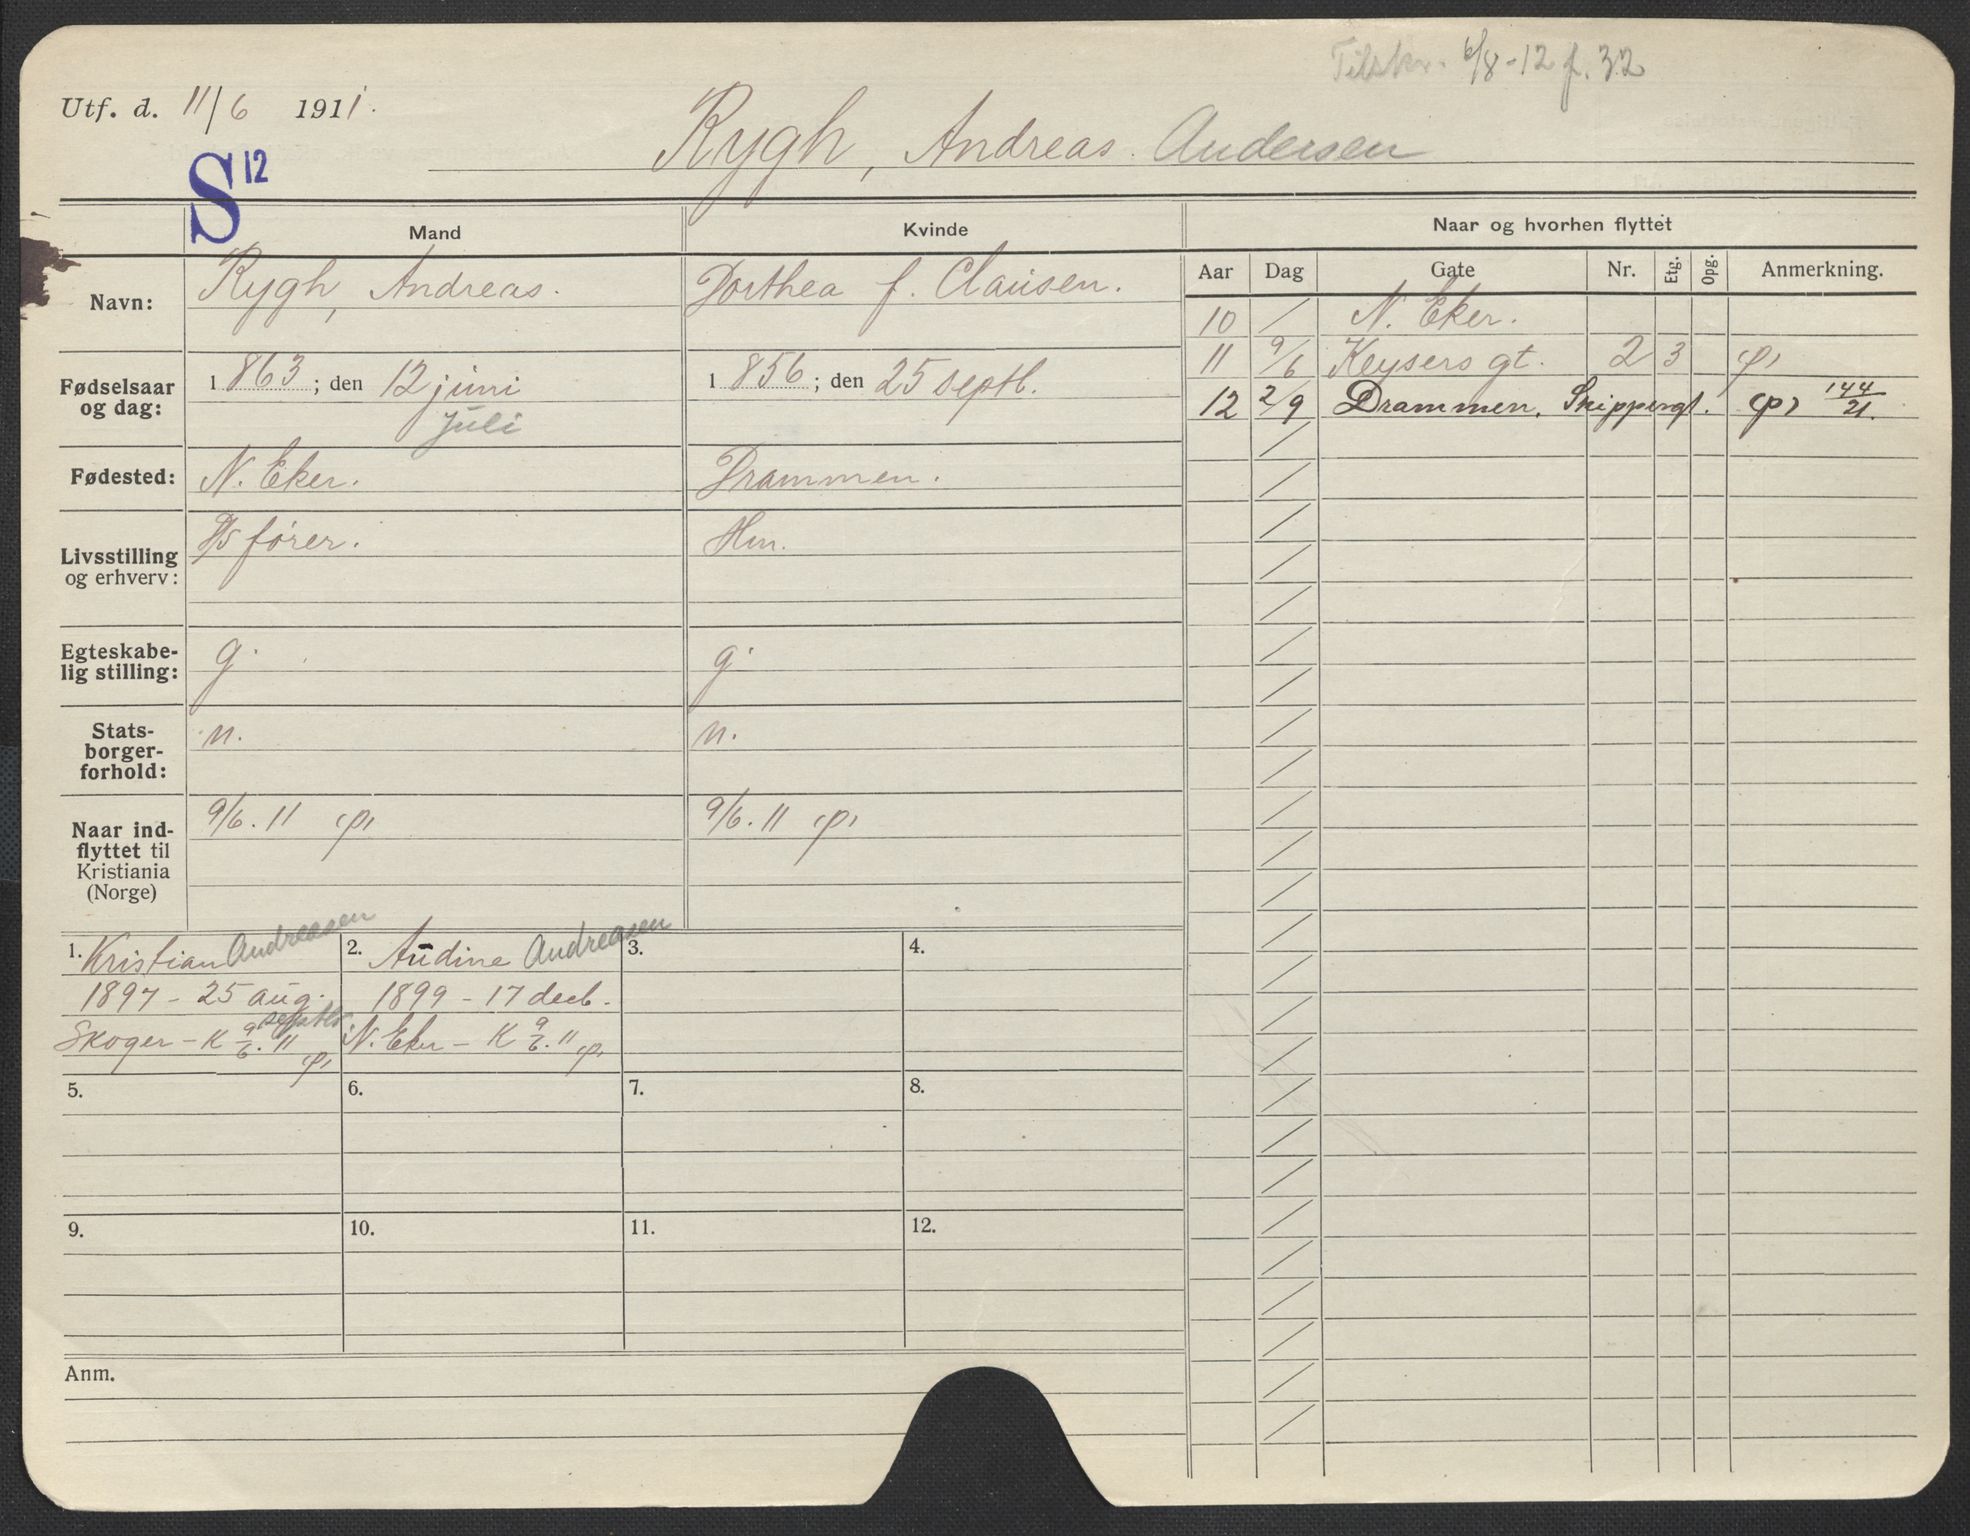 Tilskr. 6/8-12 f. 32
Utf. d. 11/6 1911.
Rygh, Andreas. Andersen
S12
Mand
Kvinde
Navn:
Rygh, Andreas.
Dorthea f. Clausen.
Fødselsaar og dag:
1863; den 12 juni
Juli
1856; den 25 septb.
Fødested:
N. Eker.
Drammen.
Livsstilling og erhverv:
D/S fører.
Hm.
Egteskabe-
lig stilling:
g.
g.
Stats-
borger-
forhold:
n.
n.
Naar ind-
flyttet til
Kristiania
(Norge)
9/6. 11 (p)
9/6. 11 (p)
1. Kristian Andreasen
1897 - 25 aug.
septbr
Skoger - K 9/6. 11 (p)
2. Audine Andreasen
1899 - 17 decb.
N. Eker - K 9/6. 11 (p)
3.
4.
5.
6.
7.
8.
9.
10.
11.
12.
Anm.
Naar og hvorhen flyttet
Aar Dag Gate Nr. Etg. Opg. Anmerkning.
10 / N. Eker.
11 9/6 Keysers gt. 2 3 (p)
12 2/9 Drammen, Skippergt. (p) 144/21.